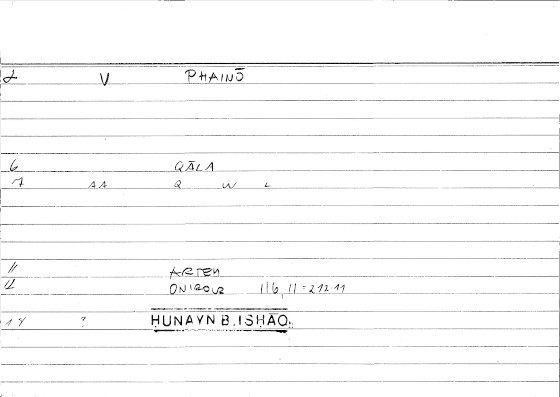 2 V PHAINŌ
6 QĀLA
7 AA Q W L
11 ARTEM
12 ONIROCR 116,11 = 212.11
14 ? HUNAYN B. ISHĀQ.